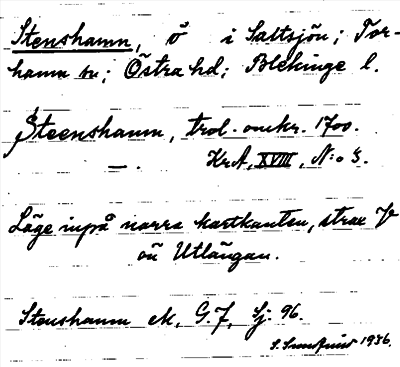 Stenshamn, ö i Saltsjön; Tor-
hamn sn; Östra hd; Blekinge l.
Steenshamn, trol. omkr. 1700.
— . KrA, XVIII, N:o 3.
Läge inpå norra kartkanten, strax V
on Utlängan.
Stenshamn M, G.J, Sj: 96.
1936.